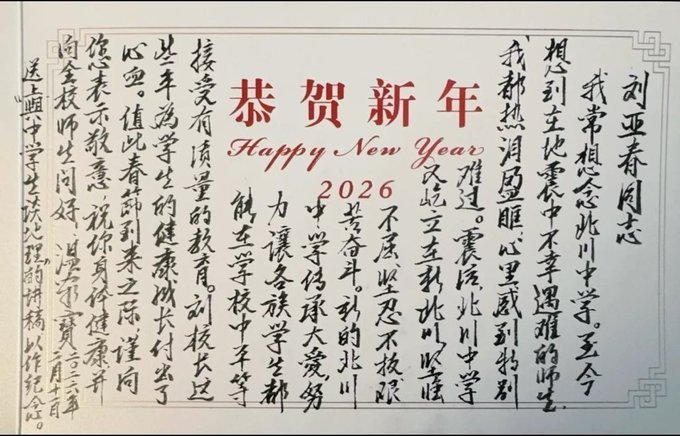 恭贺新年
Happy New Year
2026
刘亚春同志
我常想念北川中学。至今
想到在地震中不幸遇难的师生,
我都热泪盈眶,心里感到特别
难过。震后,北川中学
又屹立在新北川,坚强
不屈坚忍不拔艰
苦奋斗。新的北川
中学传承大爱,努
力讓各族学生都
能在学校中平等
接受有质量的教育。刘校长这
些年为学生的健康成长付出了
心血。值此春节到来之际,谨向
您表示敬意,祝你身体健康,并
向全校师生问好。温家寶
二〇二六年
送上與中学生谈地理的讲稿,以作纪念。